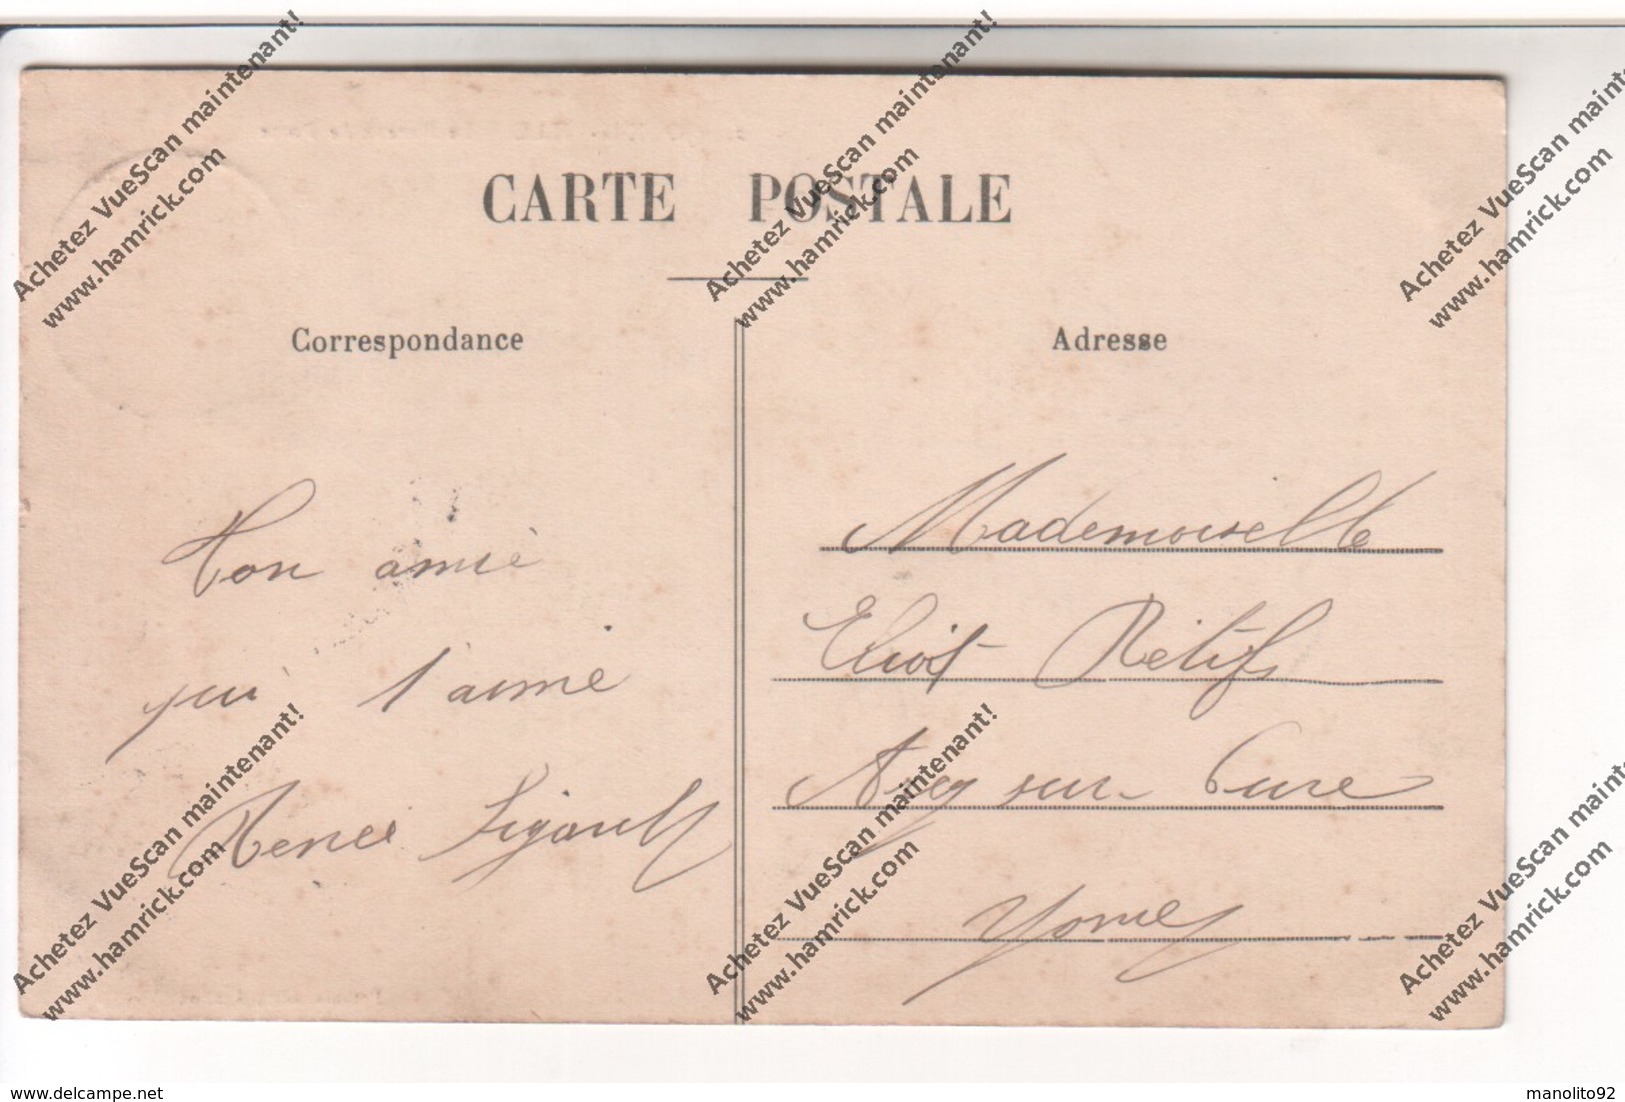 CARTE POSTALE
Correspondance
Adresse
Ton amie
qui t'aime
Renée Ligault
Mademoiselle
Rétif
sur Cure
Yonne
Achetez VueScan maintenant!
www.hamrick.com
Achetez VueScan maintenant!
www.hamrick.com
Achetez VueScan maintenant!
www.hamrick.com
Achetez VueScan maintenant!
www.hamrick.com
Achetez VueScan maintenant!
www.hamrick.com
Achetez VueScan maintenant!
www.hamrick.com
www.delcampe.net
manolito92